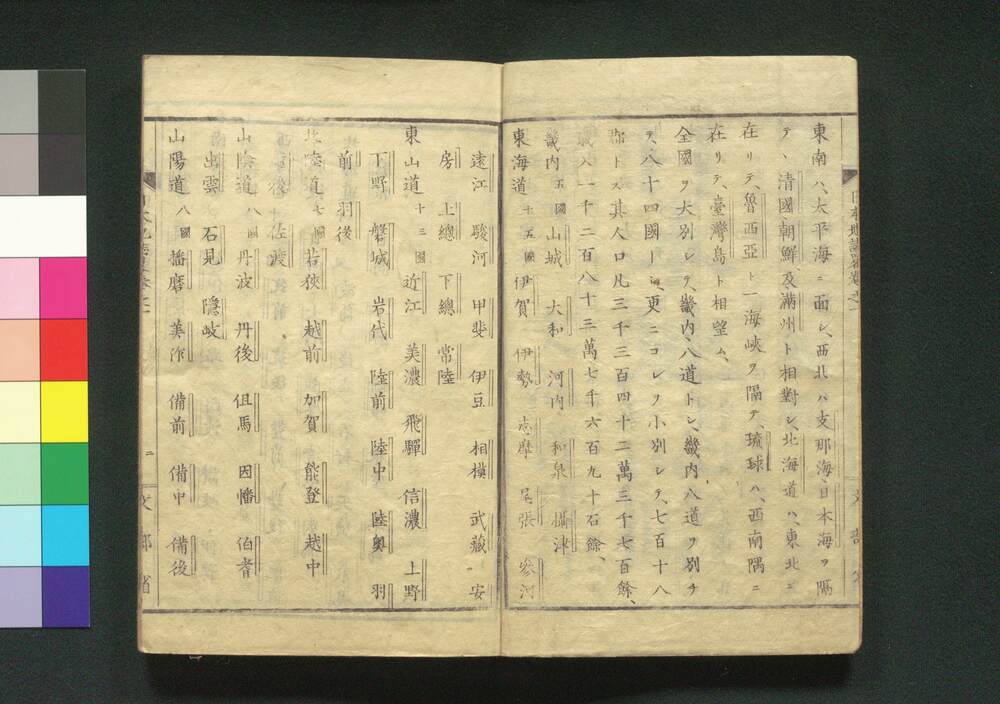 東南ハ、太平海ニ面シ、西北ハ支那海、日本海ヲ隔
テ、清國、朝鮮、及滿州ト相對シ、北海道ハ、東北ニ
在リテ、魯西亞ト一海峽ヲ隔テ、琉球ハ、西南隅ニ
在リテ、臺灣島ト相望ム、
全國ヲ大別シテ、畿內、八道トシ、畿內八道ヲ別チ
テ、八十四國トシ、更ニコレヲ小別シテ、七百十八
郡トス其人口凡三千三百四十二萬三千七百餘、
歲入一千二百八十三萬七千六百九十石餘、
畿內 五國 山城 大和 河內 和泉 攝津
東海道 十五國 伊賀 伊勢 志摩 尾張 參河
遠江 駿河 甲斐 伊豆 相模 武藏 安
房 上總 下總 常陸
東山道 十三國 近江 美濃 飛驒 信濃 上野
下野 磐城 岩代 陸前 陸中 陸奧 羽
前 羽後
北陸道 七國 若狹 越前 加賀 能登 越中
越後 佐渡
山陰道 八國 丹波 丹後 但馬 因幡 伯耆
出雲 石見 隱岐
山陽道 八國 播磨 美作 備前 備中 備後
二 文部省